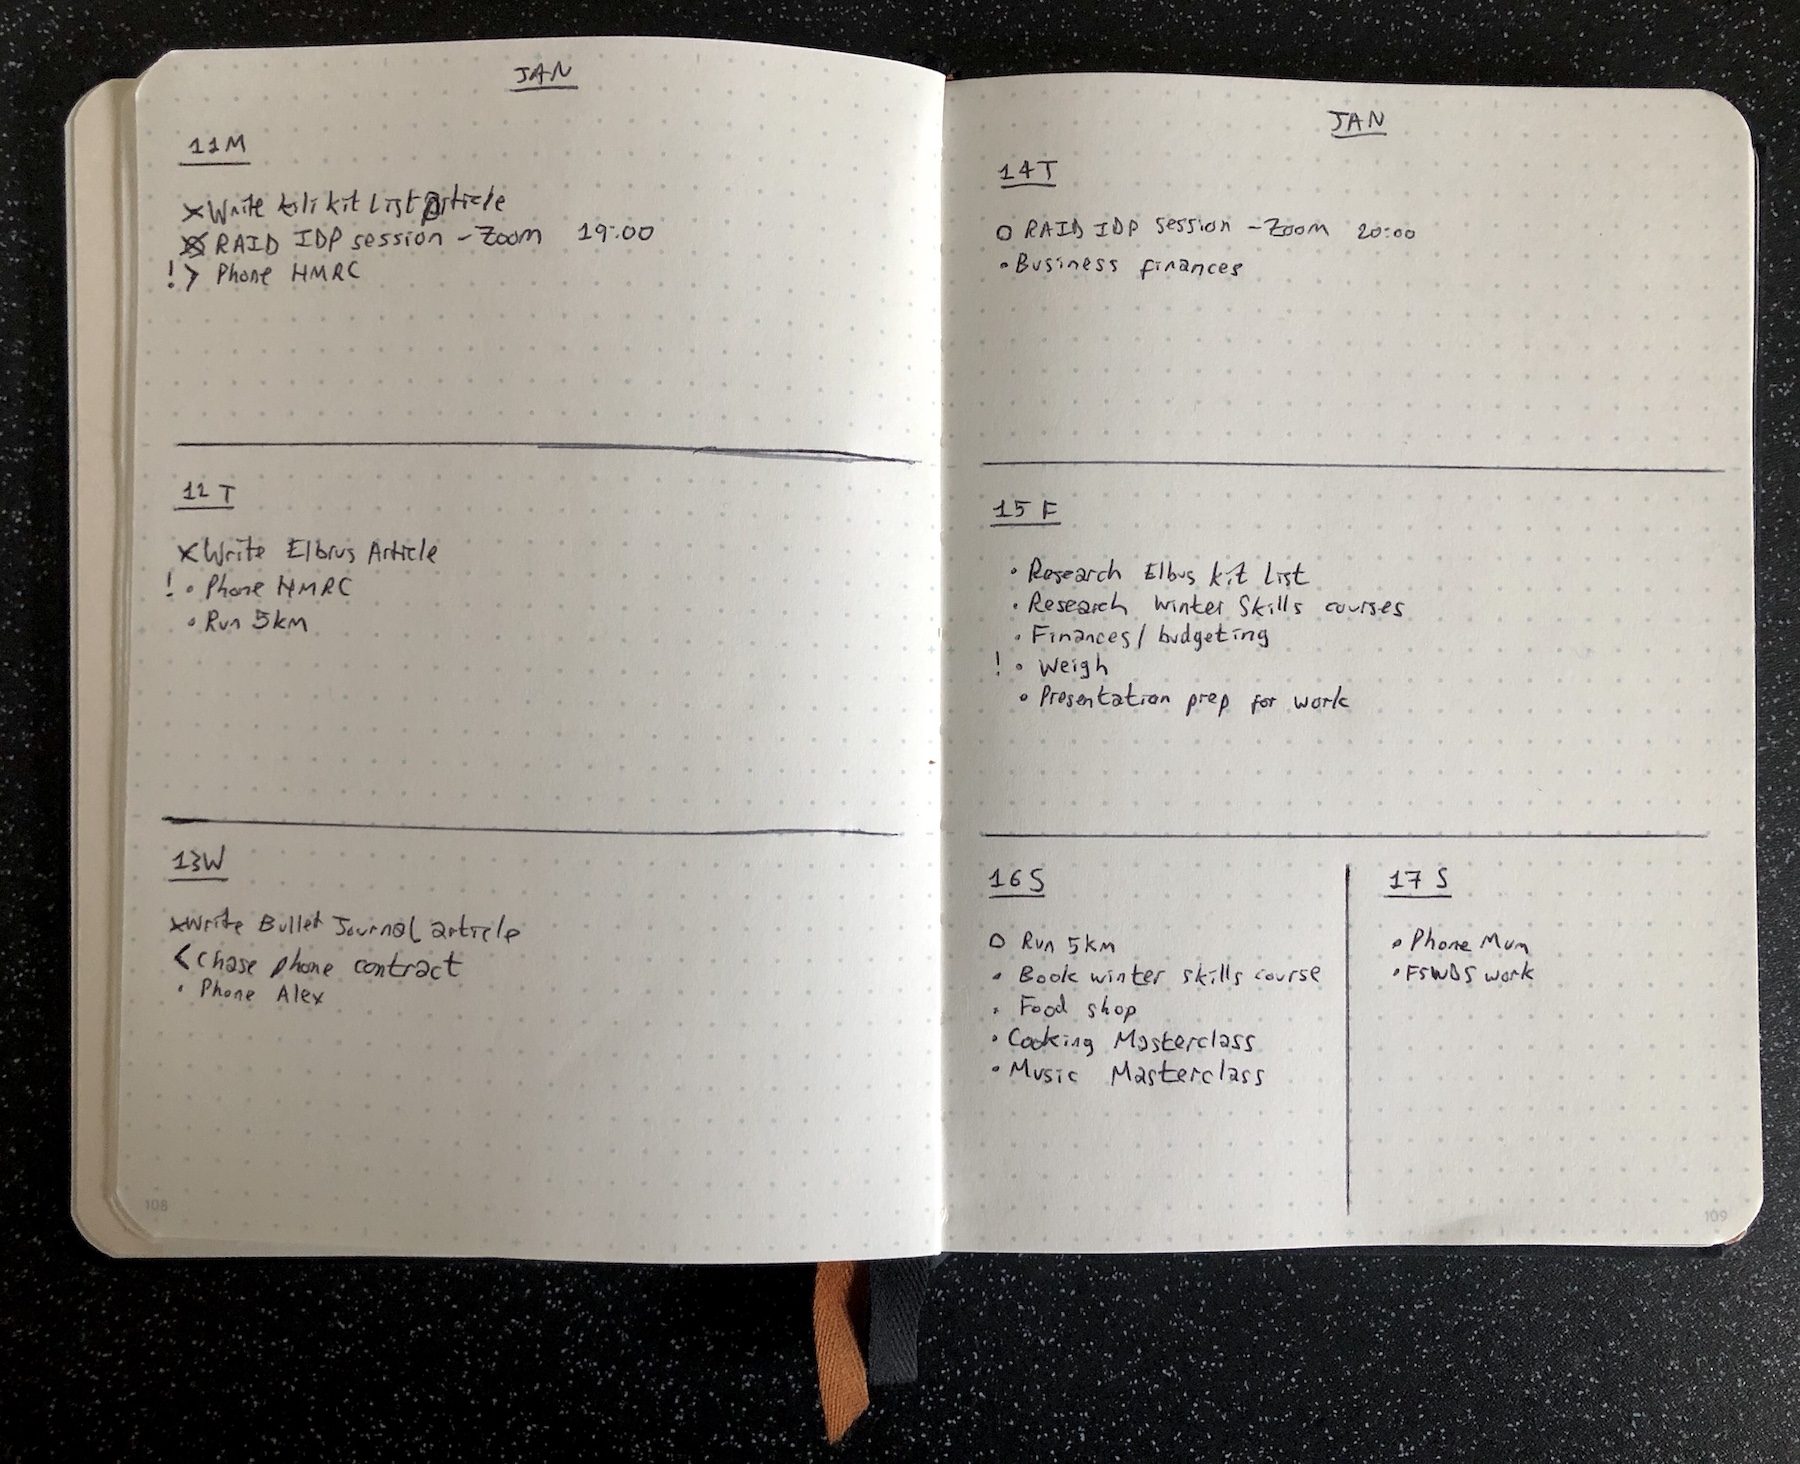 JAN
11M
×Write kili kit List Article
⊗ RAID IDP session - Zoom 19:00
! > Phone HMRC
12 T
×Write Elbrus Article
! • Phone HMRC
• Run 5km
13W
×Write Bullet Journal article
< Chase phone contract
• Phone Alex
108
JAN
14T
O RAID IDP session - Zoom 20:00
• Business finances
15 F
• Research Elbus kit List
• Research Winter Skills courses
• Finances/ budgeting
! • Weigh
• Presentation prep for work
16 S
O Run 5km
• Book winter skills course
• Food shop
• Cooking Masterclass
• Music Masterclass
17 S
• Phone Mum
• FSWDS work
109